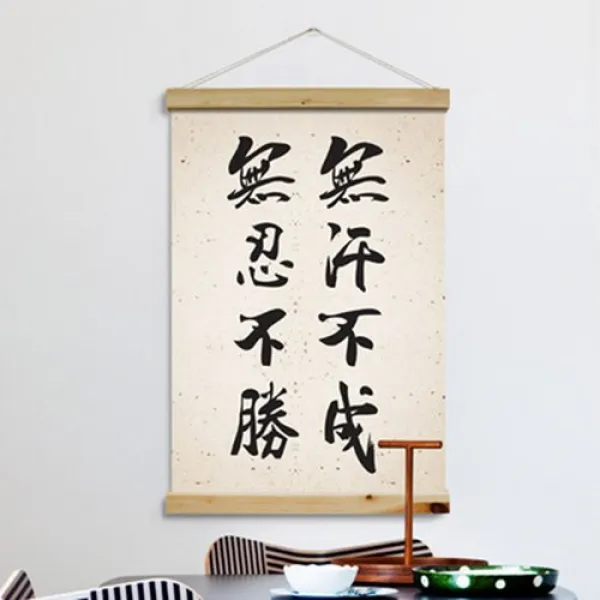 無汗不成
無忍不勝